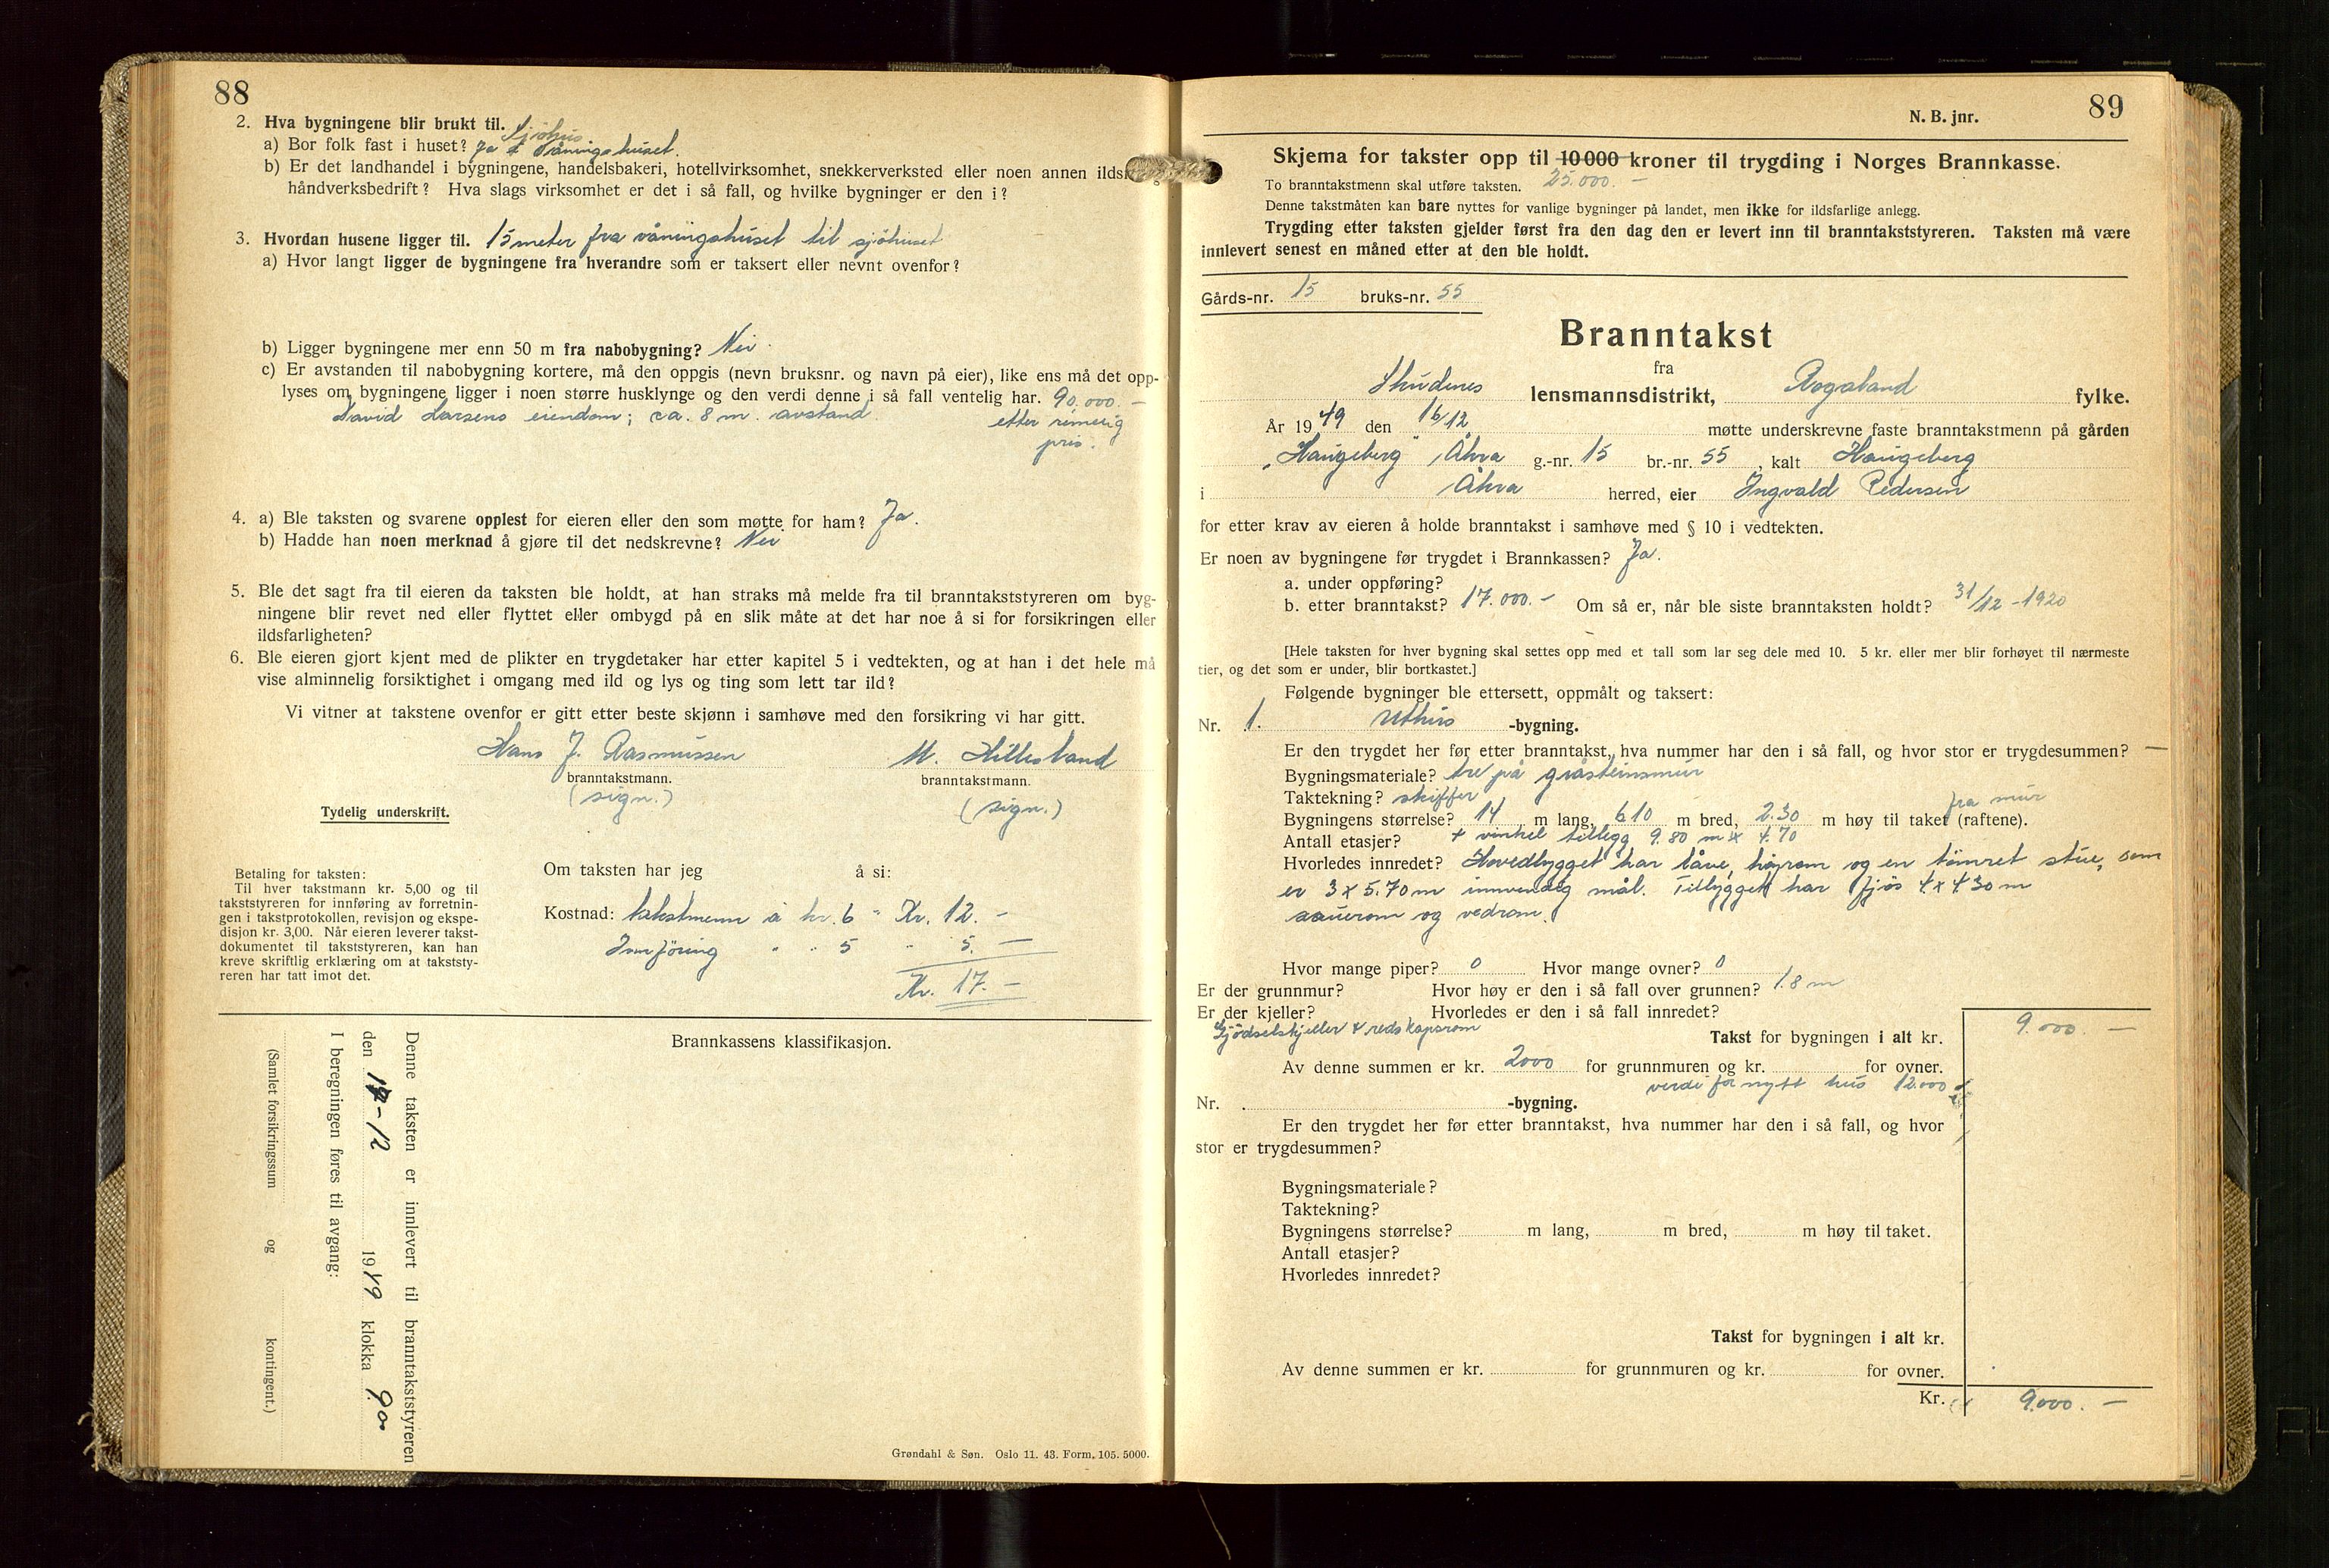 88
2. Hva bygningene blir brukt til. Sjøhus
a) Bor folk fast i huset? Ja i våningshuset.
b) Er det landhandel i bygningene, handelsbakeri, hotellvirksomhet, snekkerverksted eller noen annen
håndverksbedrift? Hva slags virksomhet er det i så fall, og hvilke bygninger er den i?
3. Hvordan husene ligger til. 15 meter fra våningshuset til sjøhuset
a) Hvor langt ligger de bygningene fra hverandre som er taksert eller nevnt ovenfor?
b) Ligger bygningene mer enn 50 m fra nabobygning? Nei
c) Er avstanden til nabobygning kortere, må den oppgis (nevn bruksnr. og navn på eier), like ens må det opp-
lyses om bygningene ligger i noen større husklynge og den verdi denne i så fall ventelig har. 90.000.-
David Larsens eiendom; ca. 8 m. avstand. etter rimelig
pris.
4. a) Ble taksten og svarene opplest for eieren eller den som møtte for ham? Ja.
b) Hadde han noen merknad å gjøre til det nedskrevne? Nei
5. Ble det sagt fra til eieren da taksten ble holdt, at han straks må melde fra til branntakststyreren om byg-
ningene blir revet ned eller flyttet eller ombygd på en slik måte at det har noe å si for forsikringen eller
ildsfarligheten?
6. Ble eieren gjort kjent med de plikter en trygdetaker har etter kapitel 5 i vedtekten, og at han i det hele må
vise alminnelig forsiktighet i omgang med ild og lys og ting som lett tar ild?
Vi vitner at takstene ovenfor er gitt etter beste skjønn i samhøve med den forsikring vi har gitt.
Hans J. Rasmussen M. Hillesland
branntakstmann. branntakstmann.
(sign.) (sign.)
Tydelig underskrift.
Betaling for taksten:
Til hver takstmann kr. 5,00 og til
takststyreren for innføring av forretnin-
gen i takstprotokollen, revisjon og ekspe-
disjon kr. 3,00. Når eieren leverer takst-
dokumentet til takststyreren, kan han
kreve skriftlig erklæring om at takststy-
reren har tatt imot det.
Om taksten har jeg å si:
Kostnad: takstmenn à kr. 6 " Kr. 12. -
Innføring " " 5 " 5. -
Kr. 17. -
Brannkassens klassifikasjon.
Denne taksten er innlevert til branntakststyreren
den 17-12 1949 klokka 9 00
I beregningen føres til avgang:
(Samlet forsikringssum og kontingent.)
Grøndahl & Søn. Oslo 11. 43. Form. 105. 5000.
89
N. B. jnr.
Skjema for takster opp til 10 000 kroner til trygding i Norges Brannkasse.
To branntakstmenn skal utføre taksten. 25.000. -
Denne takstmåten kan bare nyttes for vanlige bygninger på landet, men ikke for ildsfarlige anlegg.
Trygding etter taksten gjelder først fra den dag den er levert inn til branntakststyreren. Taksten må være
innlevert senest en måned etter at den ble holdt.
Gårds-nr. 15 bruks-nr. 55
Branntakst
fra
Skudenes lensmannsdistrikt, Rogaland fylke.
År 1949 den 16/12 møtte underskrevne faste branntakstmenn på gården
"Haugeberg" Åkra g.-nr. 15 br.-nr. 55, kalt Haugeberg
i Åkra herred, eier Ingvald Pedersen
for etter krav av eieren å holde branntakst i samhøve med § 10 i vedtekten.
Er noen av bygningene før trygdet i Brannkassen? Ja.
a. under oppføring?
b. etter branntakst? 17.000.- Om så er, når ble siste branntaksten holdt? 31/12 - 1920
[Hele taksten for hver bygning skal settes opp med et tall som lar seg dele med 10. 5 kr. eller mer blir forhøyet til nærmeste
tier, og det som er under, blir bortkastet.]
Følgende bygninger ble ettersett, oppmålt og taksert:
Nr. 1. Uthus -bygning.
Er den trygdet her før etter branntakst, hva nummer har den i så fall, og hvor stor er trygdesummen? -
Bygningsmateriale? tre på gråsteinsmur
Taktekning? skiffer fra mur
Bygningens størrelse? 14 m lang, 6.10 m bred, 2.30 m høy til taket (raftene).
Antall etasjer? + vinkel tillegg 9.80 m x 4.70
Hvorledes innredet? Hovedbygget har låve, høyrom og en tømret stue, som
er 3 x 5.70 m innvendig mål. Tilbygget har fjøs 4 x 4 30 m
sauerom og vedrom.
Hvor mange piper? 0 Hvor mange ovner? 0
Er der grunnmur? Hvor høy er den i så fall over grunnen? 1.8 m
Er der kjeller? Hvorledes er den i så fall innredet?
Gjødselskjeller & redskapsrom
Takst for bygningen i alt kr. 9.000. -
Av denne summen er kr. 2000 for grunnmuren og kr. for ovner.
verdi for nytt hus 12.000
Nr. -bygning.
Er den trygdet her før etter branntakst, hva nummer har den i så fall, og hvor
stor er trygdesummen?
Bygningsmateriale?
Taktekning?
Bygningens størrelse? m lang, m bred, m høy til taket.
Antall etasjer?
Hvorledes innredet?
Takst for bygningen i alt kr.
Av denne summen er kr. for grunnmuren og kr. for ovner.
Kr. 9.000. -